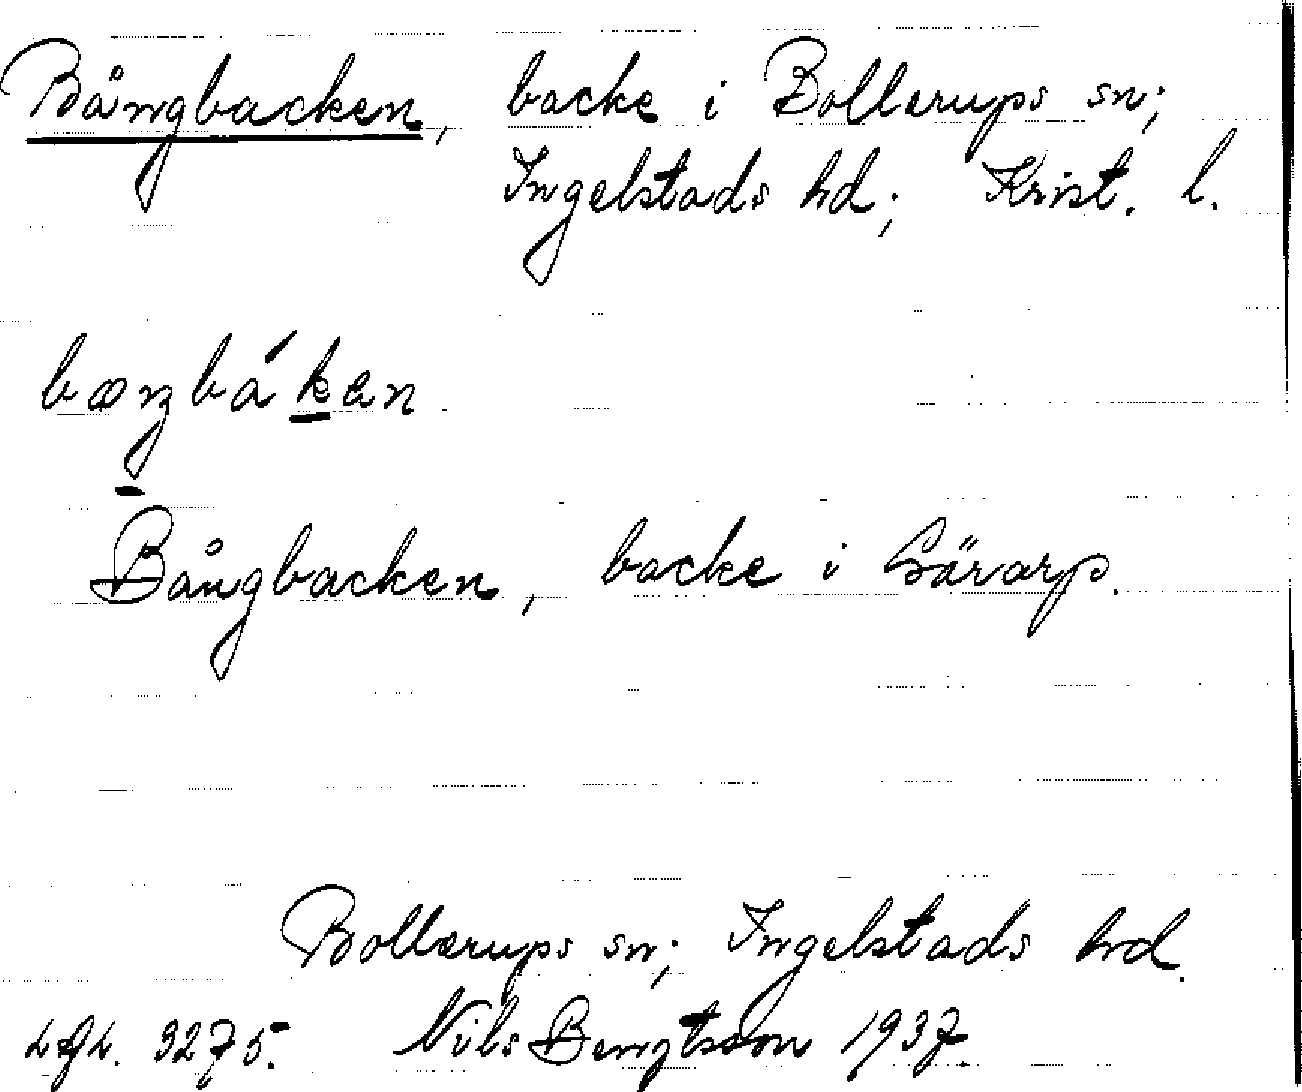 Bångbacken, backe i Bollerups sn;
Ingelstads hd; Krist. l.
Bångbacken, backe i Gärarp.
Bollerups sn; Ingelstads hd.
3275. Nils Bengtsson 1937.